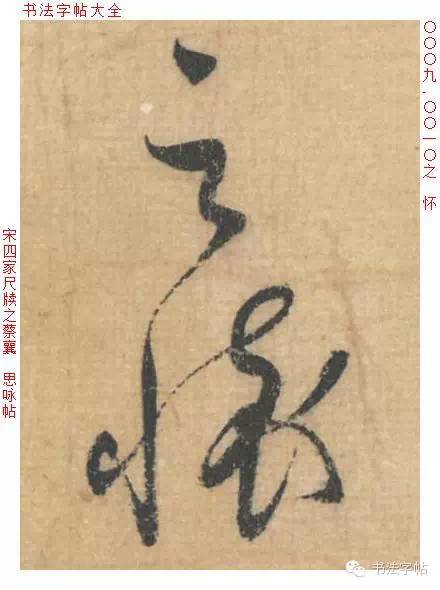 书法字帖大全
〇〇〇九-〇〇一〇之 怀
之懷
宋四家尺牍之蔡襄 思咏帖
书法字帖